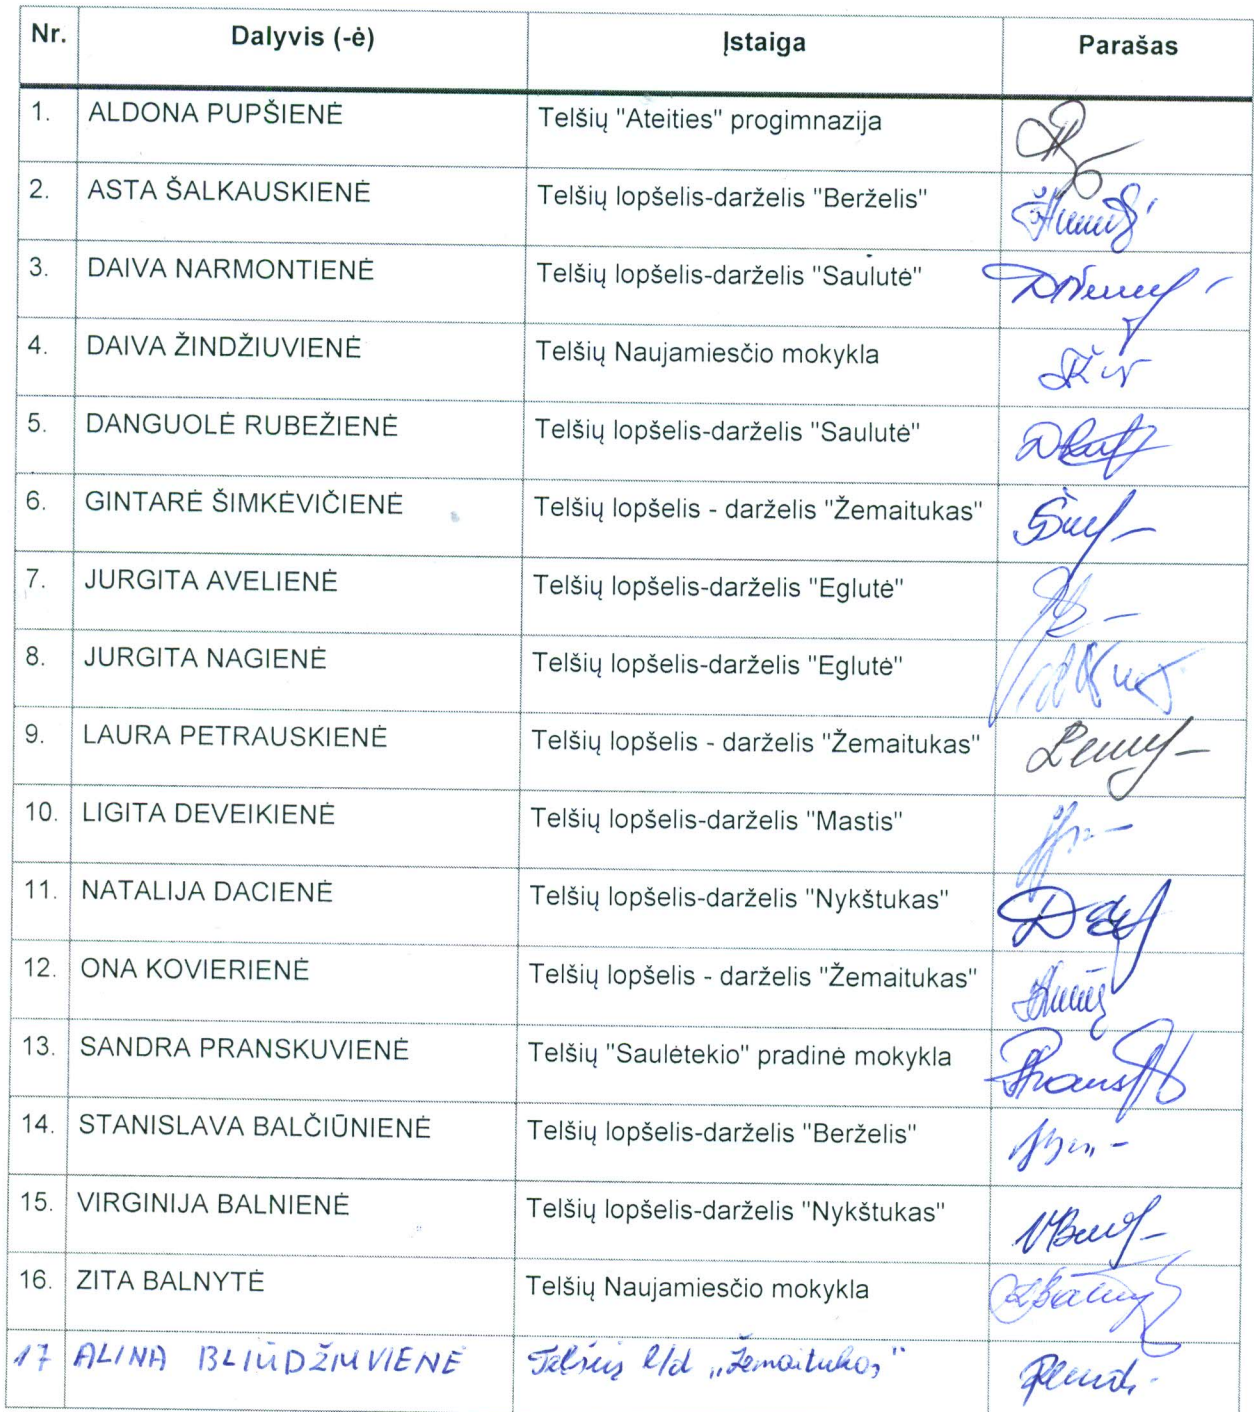 Nr. Dalyvis (-ė) Įstaiga Parašas
1. ALDONA PUPŠIENĖ Telšių "Ateities" progimnazija
2. ASTA ŠALKAUSKIENĖ Telšių lopšelis-darželis "Berželis"
3. DAIVA NARMONTIENĖ Telšių lopšelis-darželis "Saulutė"
4. DAIVA ŽINDŽIUVIENĖ Telšių Naujamiesčio mokykla
5. DANGUOLĖ RUBEŽIENĖ Telšių lopšelis-darželis "Saulutė"
6. GINTARĖ ŠIMKĖVIČIENĖ Telšių lopšelis - darželis "Žemaitukas"
7. JURGITA AVELIENĖ Telšių lopšelis-darželis "Eglutė"
8. JURGITA NAGIENĖ Telšių lopšelis-darželis "Eglutė"
9. LAURA PETRAUSKIENĖ Telšių lopšelis - darželis "Žemaitukas"
10. LIGITA DEVEIKIENĖ Telšių lopšelis-darželis "Mastis"
11. NATALIJA DACIENĖ Telšių lopšelis-darželis "Nykštukas"
12. ONA KOVIERIENĖ Telšių lopšelis - darželis "Žemaitukas"
13. SANDRA PRANSKUVIENĖ Telšių "Saulėtekio" pradinė mokykla
14. STANISLAVA BALČIŪNIENĖ Telšių lopšelis-darželis "Berželis"
15. VIRGINIJA BALNIENĖ Telšių lopšelis-darželis "Nykštukas"
16. ZITA BALNYTĖ Telšių Naujamiesčio mokykla
17 ALINA BLIŪDŽIUVIENĖ Telšių l/d „Žemaitukas"